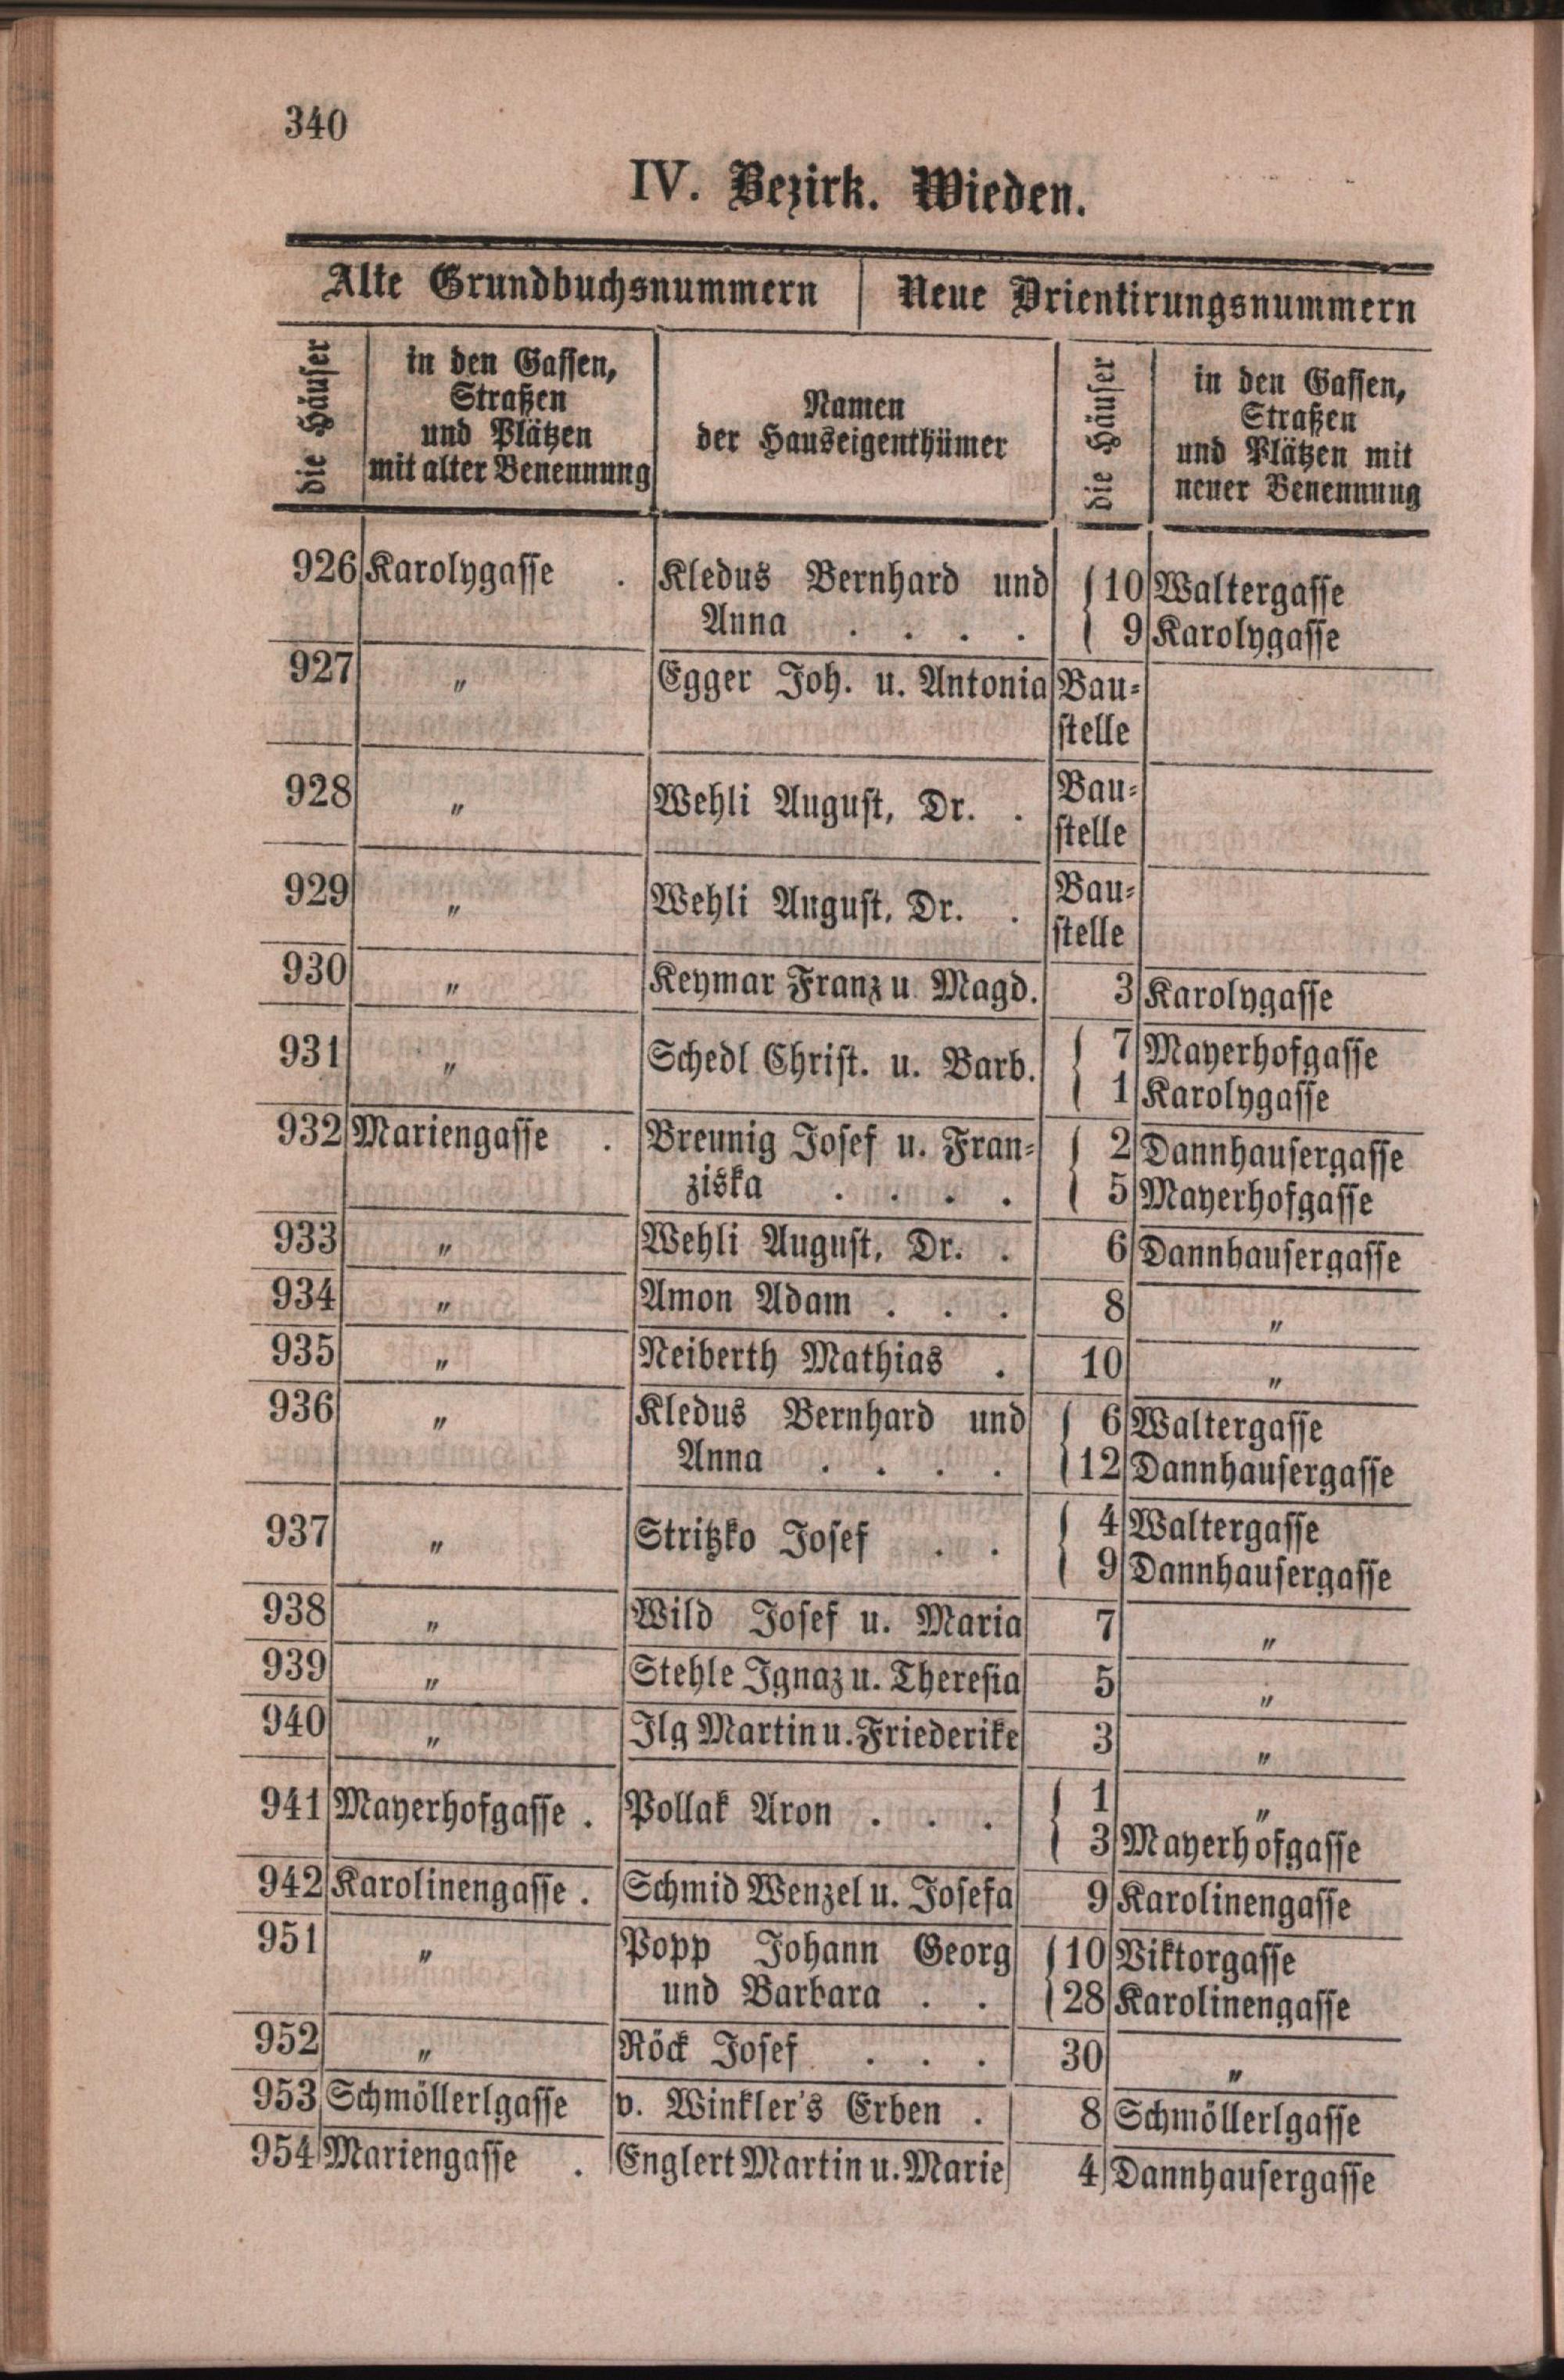 340
IV. Bezirk. Wieden.
Alte Grundbuchsnummern Neue Orientirungsnummern
die Häuser
in den Gassen,
Straßen
und Plätzen
mit alter Benennung
Namen
der Hauseigenthümer
die Häuser
in den Gassen,
Straßen
und Plätzen mit
neuer Benennung
926 Karolygasse . Kledus Bernhard und { 10 Waltergasse
Anna . . . . { 9 Karolygasse
927 „ Egger Joh. u. Antonia Bau-
stelle
928 „ Wehli August, Dr. . Bau-
stelle
929 „ Wehli August, Dr. . Bau-
stelle
930 „ Keymar Franz u Magd. 3 Karolygasse
931 „ Schedl Christ. u. Barb. { 7 Mayerhofgasse
{ 1 Karolygasse
932 Mariengasse . Breunig Josef u. Fran- { 2 Dannhausergasse
ziska . . . . { 5 Mayerhofgasse
933 „ Wehli August, Dr. . 6 Dannhausergasse
934 „ Amon Adam . . . 8 „
935 „ Neiberth Mathias . 10 „
936 „ Kledus Bernhard und { 6 Waltergasse
Anna . . . . { 12 Dannhausergasse
937 „ Stritzko Josef . . { 4 Waltergasse
{ 9 Dannhausergasse
938 „ Wild Josef u. Maria 7 „
939 „ Stehle Ignaz u. Theresia 5 „
940 „ Ilg Martin u. Friederike 3 „
941 Mayerhofgasse . Pollak Aron . . . { 1 „
{ 3 Mayerhofgasse
942 Karolinengasse . Schmid Wenzel u. Josefa 9 Karolinengasse
951 „ Popp Johann Georg { 10 Viktorgasse
und Barbara . . { 28 Karolinengasse
952 „ Röck Josef . . . 30 „
953 Schmöllerlgasse v. Winkler's Erben . 8 Schmöllerlgasse
954 Mariengasse . Englert Martin u. Marie 4 Dannhausergasse